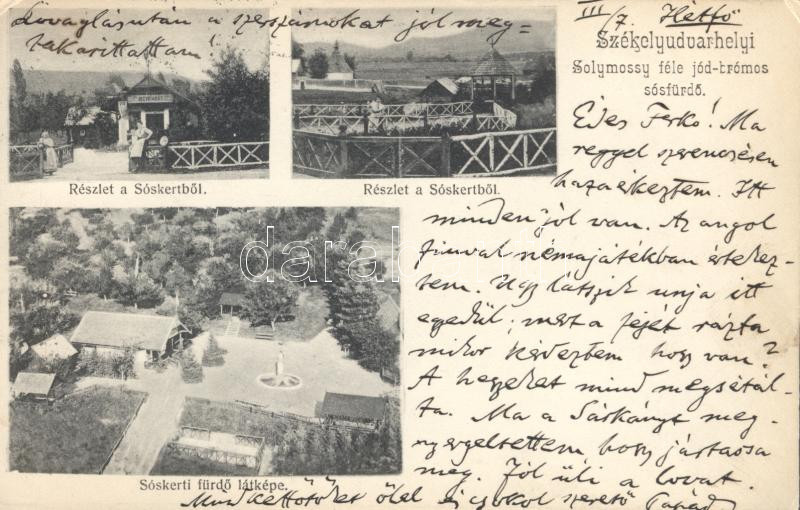 Lovaglás után a szerszámokat jól meg=
takarittattam!
III/7. Hétfő
Székelyudvarhelyi
Solymossy féle jód-brómos
sósfürdő.
Részlet a Sóskertből.
Részlet a Sóskertből.
Édes Ferkó! Ma
reggel szerencsésen
haza érkeztem. Itt
minden jól van. Az angol
fiuval némajátékban értekez-
tem. Ugy látszik unja itt
egyedül; mert a fejét rázta
mikor kérdeztem hogy van?
A hegyeket mind megsétál-
ta. Ma a Sárkányt meg-
nyergeltettem hogy jártassa
meg. Jól üli a lovat.
Sóskerti fürdő látképe.
Mindkettőtöket ölel és csókol szerető Papád
darabanth